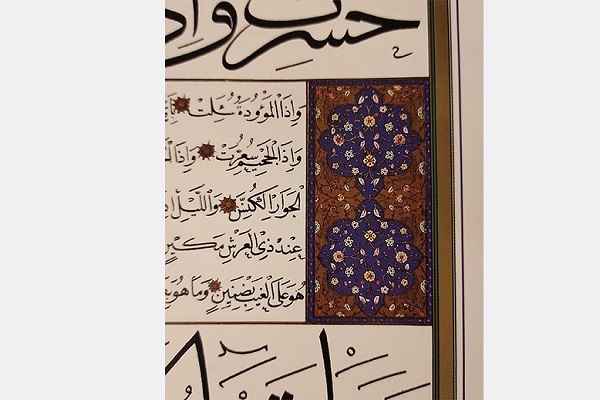 حُشِرَتْ وَاِذَ
وَاِذَا الْمَوْؤُدَةُ سُئِلَتْ
وَاِذَا الْجَحِيمُ سُعِّرَتْ وَاِذَا
الْجَوَارِ الْكُنَّسِ وَاللَّيْلِ
عِنْدَ ذِى الْعَرْشِ مَكِينٍ
هُوَ عَلَى الْغَيْبِ بِضَنِينٍ وَمَا هُوَ